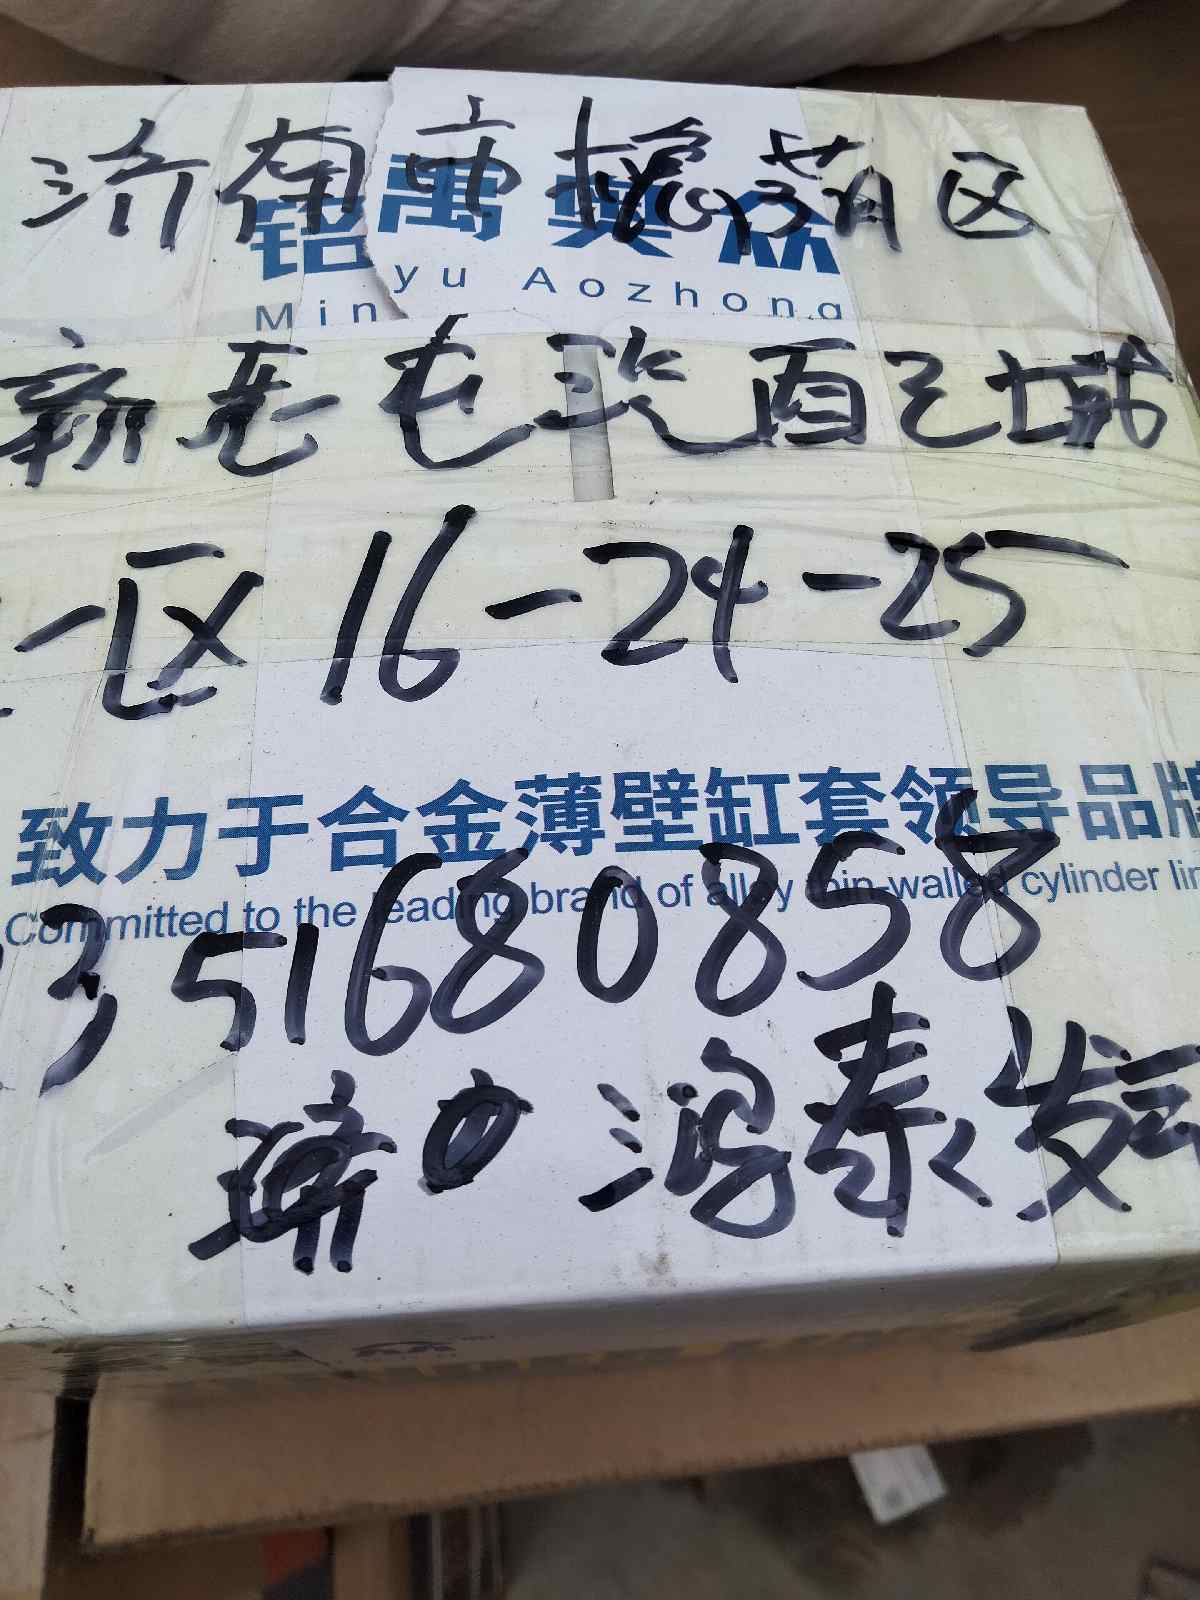 济南市槐荫区
铭禹奥众
Minyu Aozhong
新老屯汽配城
一区16-24-25
致力于合金薄壁缸套领导品牌
Committed to the leading brand of alloy thin-walled cylinder lin
3 51680858
济 鸿泰发